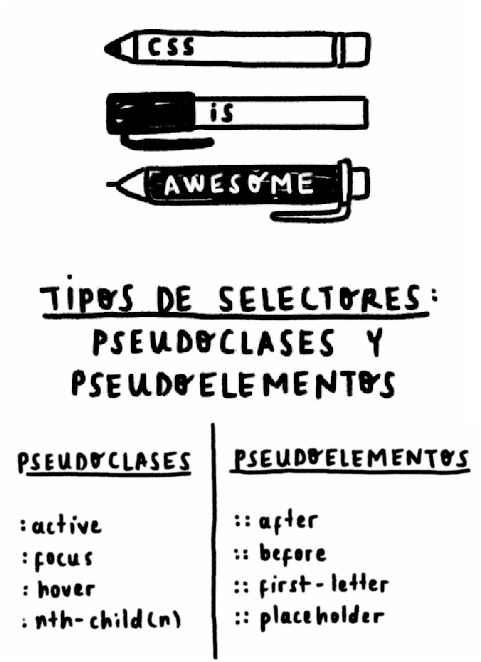 CSS
is
AWESOME
TIPOS DE SELECTORES:
PSEUDOCLASES Y
PSEUDOELEMENTOS
PSEUDOCLASES
:active
:focus
:hover
:nth-child(n)
PSEUDOELEMENTOS
::after
::before
::first-letter
::placeholder